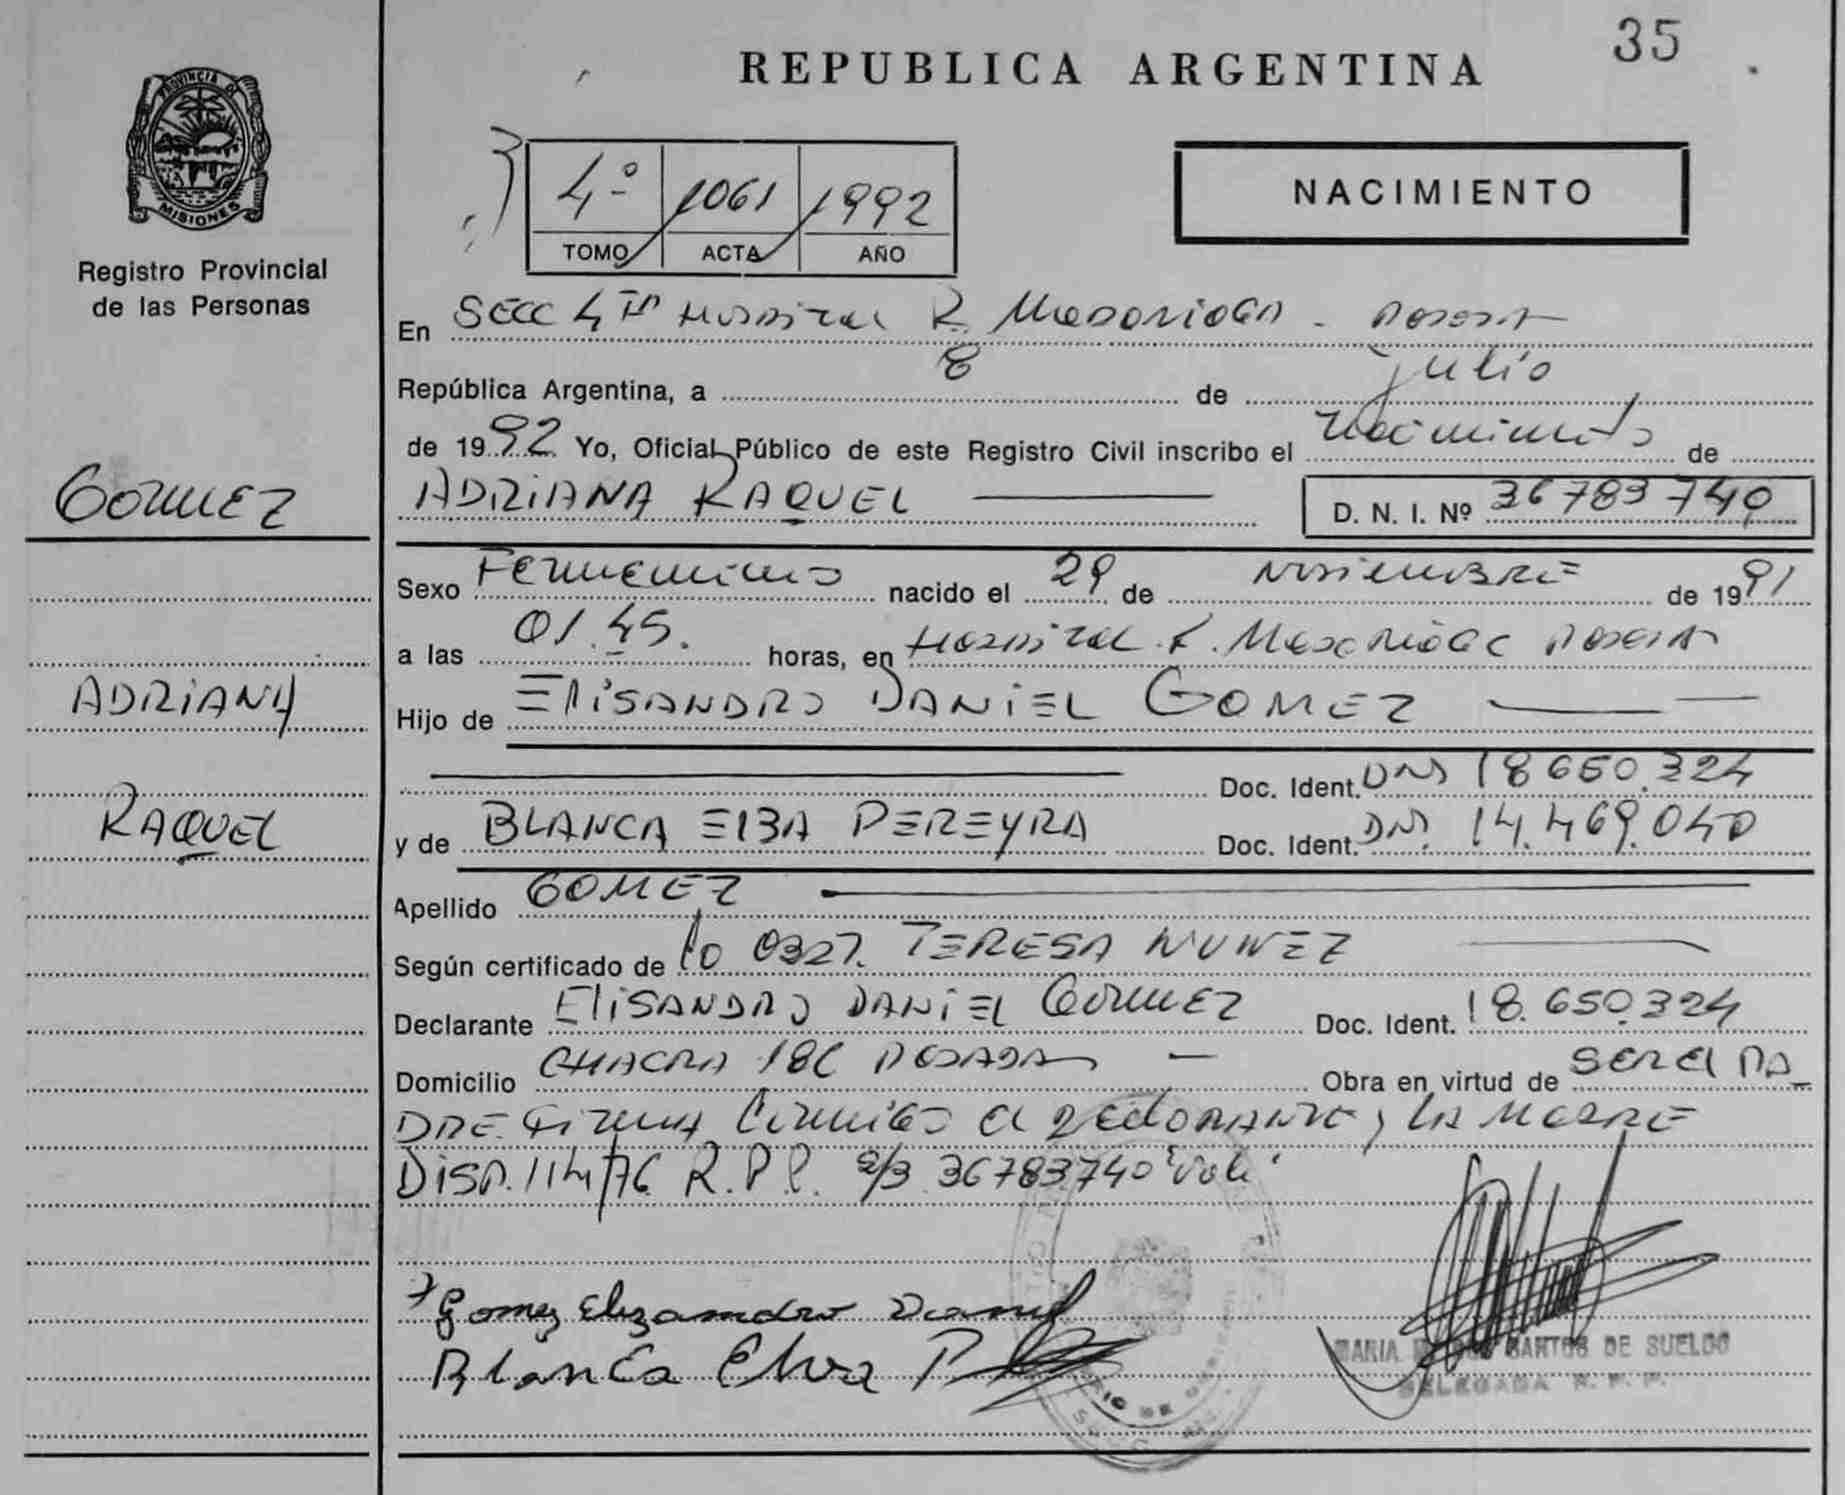 35
REPUBLICA ARGENTINA
PROVINCIA DE
MISIONES
Registro Provincial
de las Personas
4º 1061 1992
TOMO ACTA AÑO
NACIMIENTO
En SECC 4ta Hospital R. Madariaga -
República Argentina, a 8 de julio
de 1992 Yo, Oficial Público de este Registro Civil inscribo el nacimiento de
GOMEZ
ADRIANA RAQUEL
D. N. I. Nº 36783740
Sexo Femenino nacido el 29 de noviembre de 1991
a las 01.45. horas, en Hospital R. Madariaga
ADRIANA
Hijo de ELISANDRO DANIEL GOMEZ
Doc. Ident. DNI 18650.324
RAQUEL
y de BLANCA ELBA PEREYRA Doc. Ident. DNI. 14.469.040
Apellido GOMEZ
Según certificado de 0327. TERESA NUNEZ
Declarante ELISANDRO DANIEL GOMEZ Doc. Ident. 18.650.324
Domicilio CHACRA 186 POSADAS Obra en virtud de SER EL PA
DRE. Firma conmigo el declarante y la madre
DISP. 114/76 R.P.P. s/B 36783740 "Vale"
Gomez Elizandro Daniel
Blanca Elva P
MARIA SANTOS DE SUELDO
DELEGADA R. P. P.